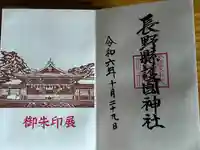 長野縣護國神社
令和六年十月二十九日
御朱印展